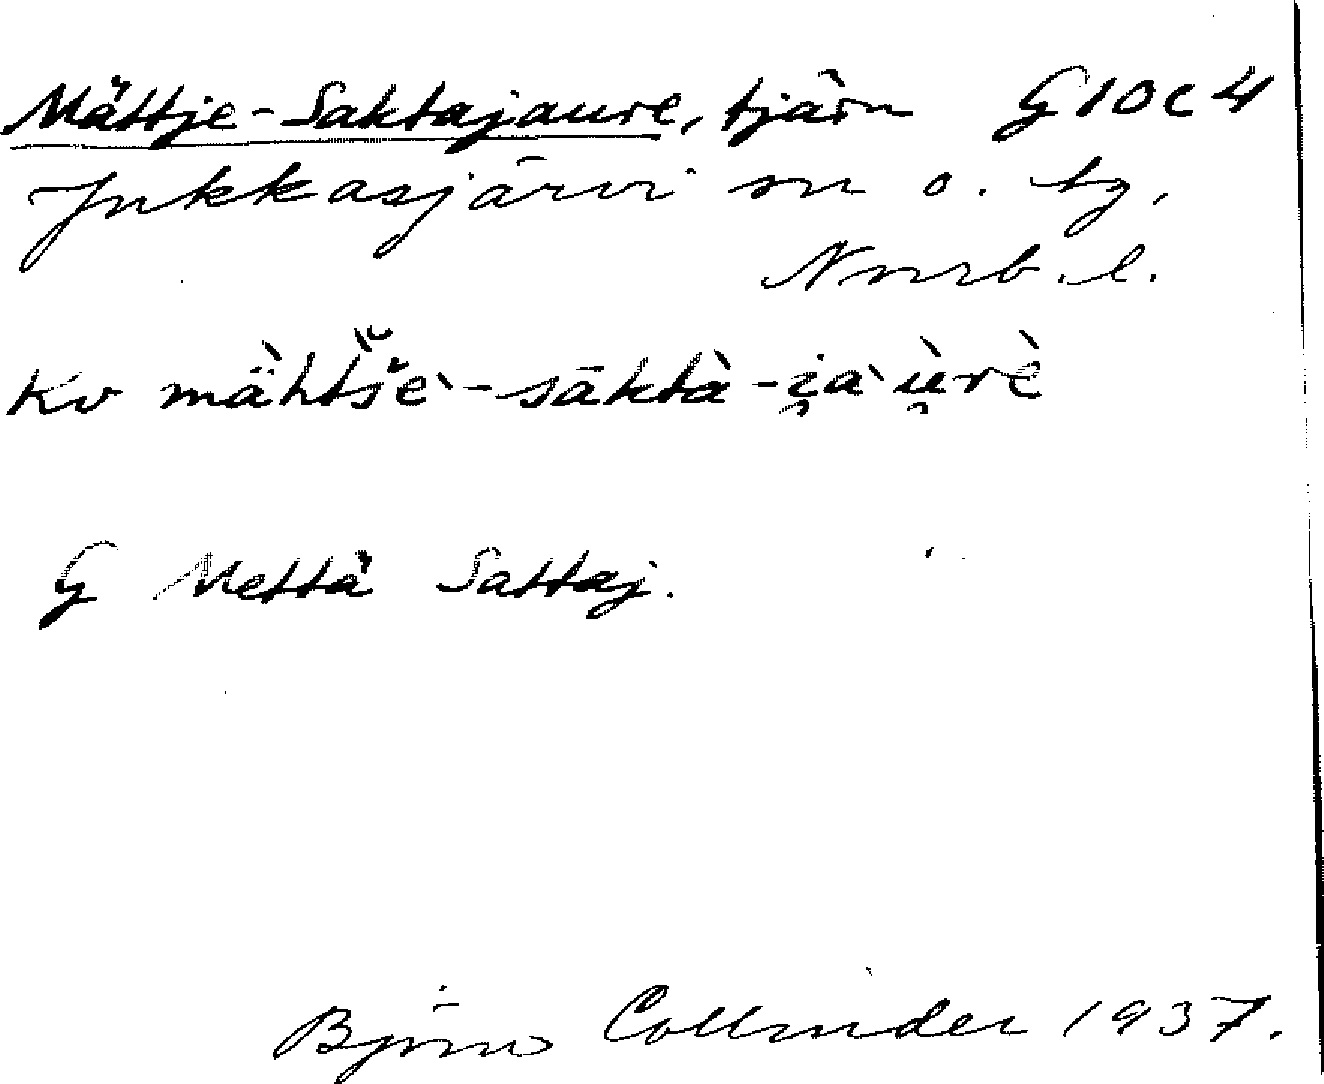 Mättje-Saktajaure, tjärn G10c4
Jukkasjärvi sn o. tg,
Norrb. l.
Kv
G Mettä Sattaj.
Björn Collinder 1937.